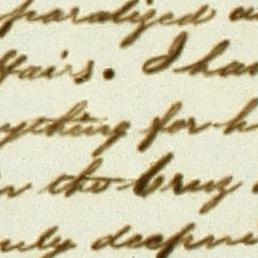 paralized
ffairs. I ha
ything for h
n the Cruz
uly deepne